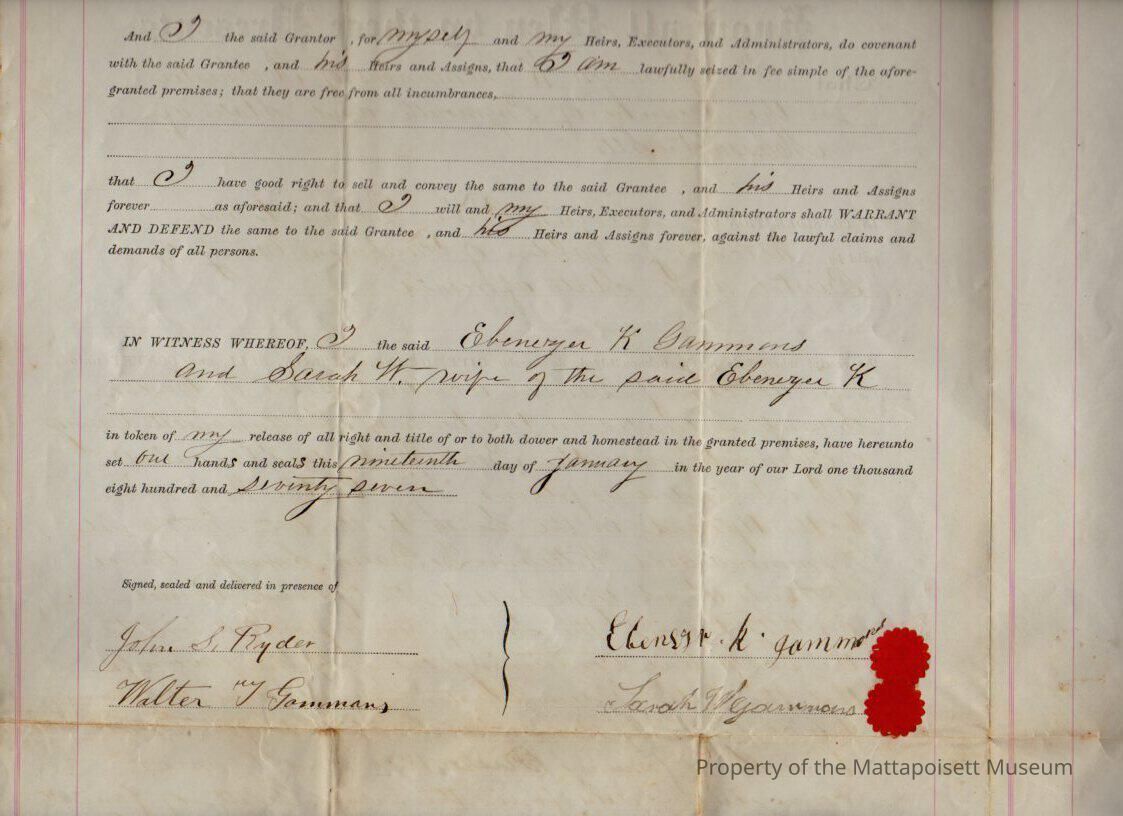 And I the said Grantor , for myself and my Heirs, Executors, and Administrators, do covenant
with the said Grantee , and his Heirs and Assigns, that I am lawfully seized in fee simple of the afore-
granted premises; that they are free from all incumbrances,
that I have good right to sell and convey the same to the said Grantee , and his Heirs and Assigns
forever as aforesaid; and that I will and my Heirs, Executors, and Administrators shall WARRANT
AND DEFEND the same to the said Grantee , and his Heirs and Assigns forever, against the lawful claims and
demands of all persons.
IN WITNESS WHEREOF, I the said Ebenezer K Gammons
and Sarah W. wife of the said Ebenezer K
in token of my release of all right and title of or to both dower and homestead in the granted premises, have hereunto
set our hands and seals this nineteenth day of January in the year of our Lord one thousand
eight hundred and seventy seven
Signed, sealed and delivered in presence of
John S. Ryder
Ebenezer K. Gammons
Walter Gammons
Sarah W Gammons
Property of the Mattapoisett Museum